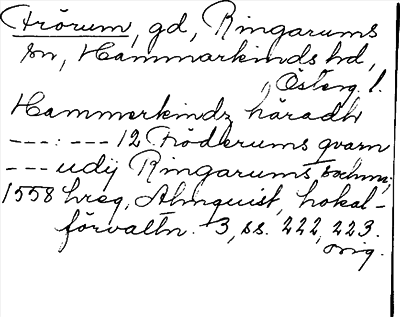 Frörum, gd, Ringarums
sn, Hammarkinds hd,
Österg. l.
Hammerkindz häradh
---:--- 12 Fröderums qvarn
--- udij Ringarums sochnn,
1558 hreg, Almquist, Lokal-
förvaltn. 3, ss. 222, 223.
orig.